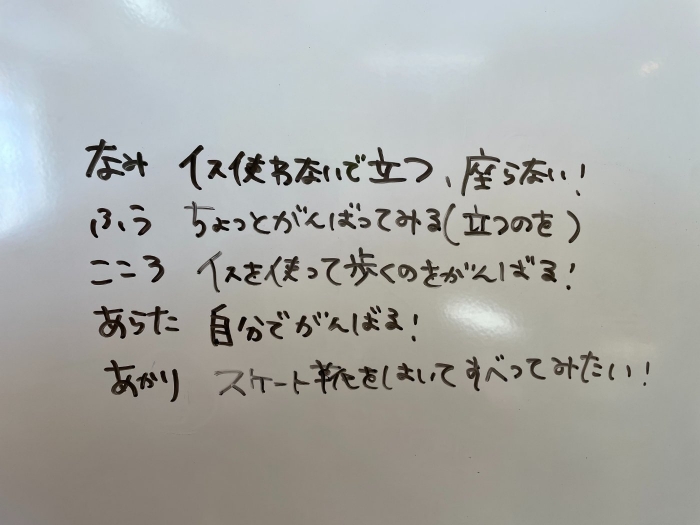 なみ イス使わないで立つ、座らない!
ふう ちょっとがんばってみる(立つのを)
こころ イスを使って歩くのをがんばる!
あらた 自分でがんばる!
あかり スケート靴をはいてすべってみたい!